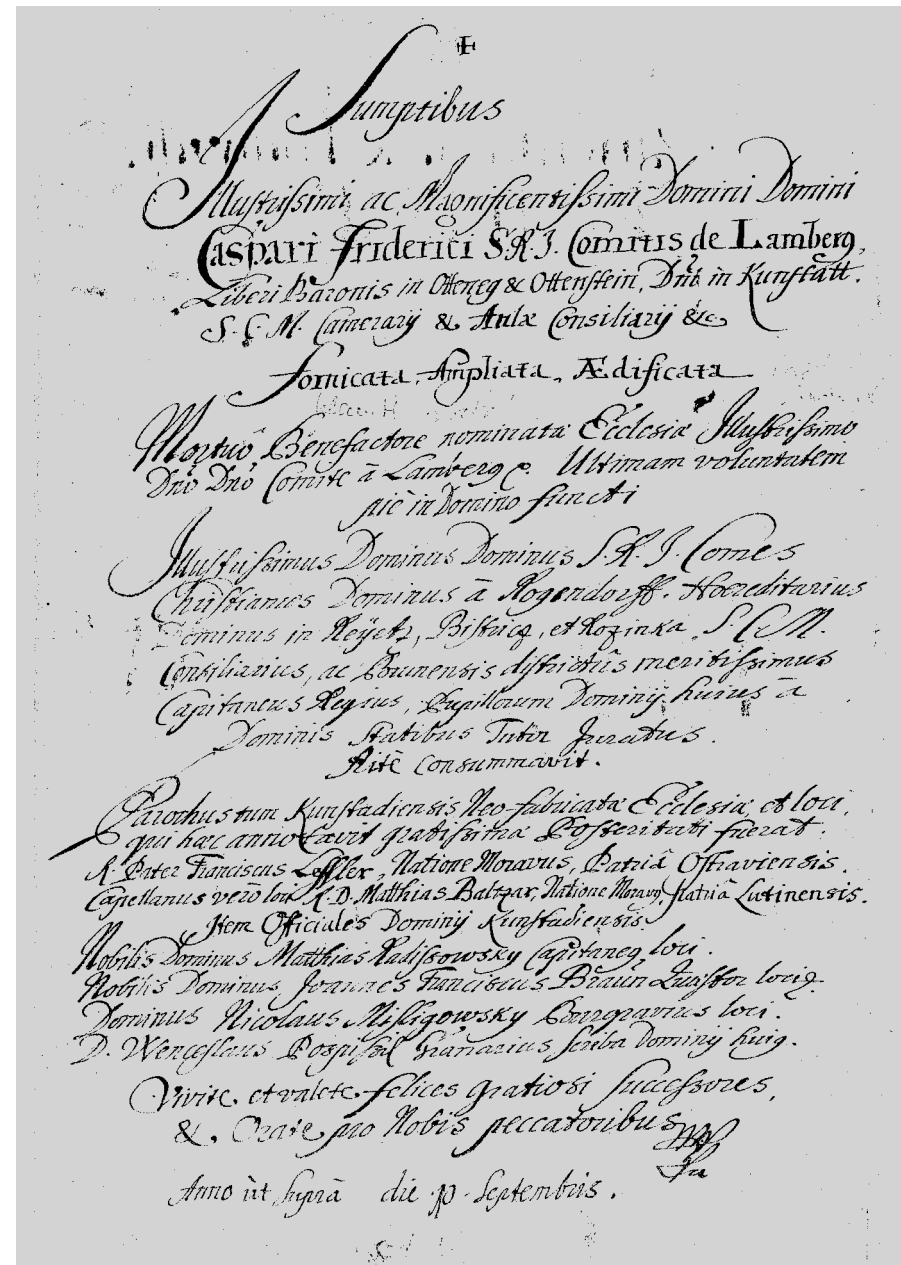 Sumptibus
Illustrissimi ac Magnificentissimi Domini Domini
Caspari Friderici S.R.I. Comitis de Lamberg,
Liberi Baronis in Otteneg & Ottenstein, Dnî in Kunstatt.
S. C. M. Camerarij & Aulæ Consiliarij &c
Fornicata, Ampliata, Ædificata
Mortuô Benefactore nominatæ Ecclesiæ Illustrissimo
Dnô Dnô Comite â Lamberg &c. Ultimam voluntatem
piè in Domino functi
Illustrissimus Dominus Dominus S. R. I. Comes
Christianus Dominus â Rogendorff. Hoereditarius
Dominus in Reyetz, Bistricz, et Rozinka, S. C. M.
Consiliarius, ac Brunensis districtûs meritissimus
Capitaneus Regius, Pupillorum Dominij huius â
Dominis Statibus Tutor Juratus.
Ritè Consummavit.
Parochus tum Kunstadiensis Neo-fabricatæ Ecclesiæ, et loci,
qui hac anno gratissimæ Posteritati fuerat.
R. Pater Franciscus Leffler, Natione Moravus, Patriâ Ostraviensis
Capellanus verò loci R. D. Matthias Baltzar, Natione Moravg, Patriâ Lutinensis.
Item Officiales Dominij Kunstadiensis.
Nobilis Dominus Matthias Radissowsky Capitaneg loci.
Nobilis Dominus Joannes Franciscus Braun Quæstor locig.
Dominus Nicolaus Misligowsky Burgravius loci.
D. Wenceslaus Pospissil Granarius Scriba Dominij huig.
Vivite et valete felices gratiosi successores,
&. Orate pro Nobis peccatoribus
Anno ùt suprà die Septembris.